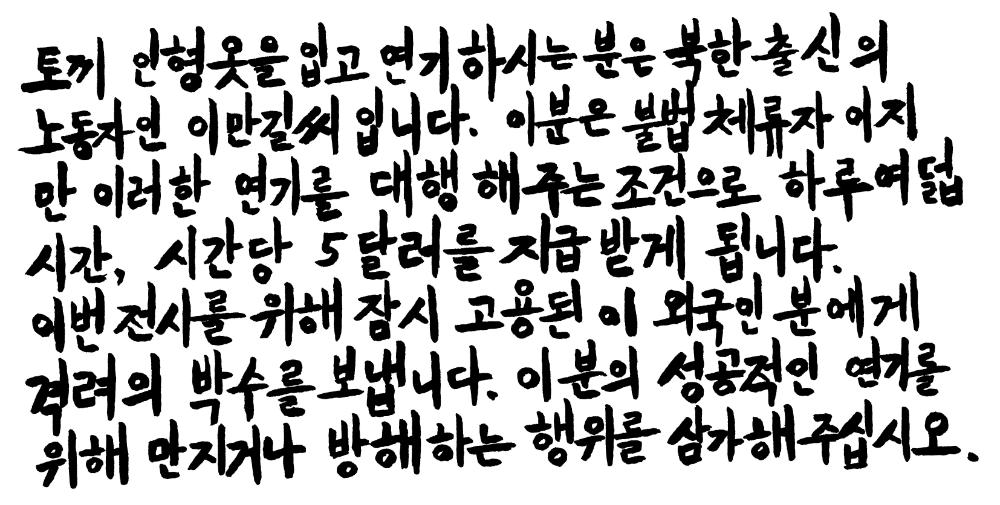 토끼 인형옷을 입고 연기하시는 분은 북한 출신의
노동자인 이만길씨 입니다. 이분은 불법 체류자 이지
만 이러한 연기를 대행 해주는 조건으로 하루 여덟
시간, 시간당 5달러를 지급 받게 됩니다.
이번 전시를 위해 잠시 고용된 이 외국인 분에게
격려의 박수를 보냅니다. 이 분의 성공적인 연기를
위해 만지거나 방해하는 행위를 삼가해 주십시오.